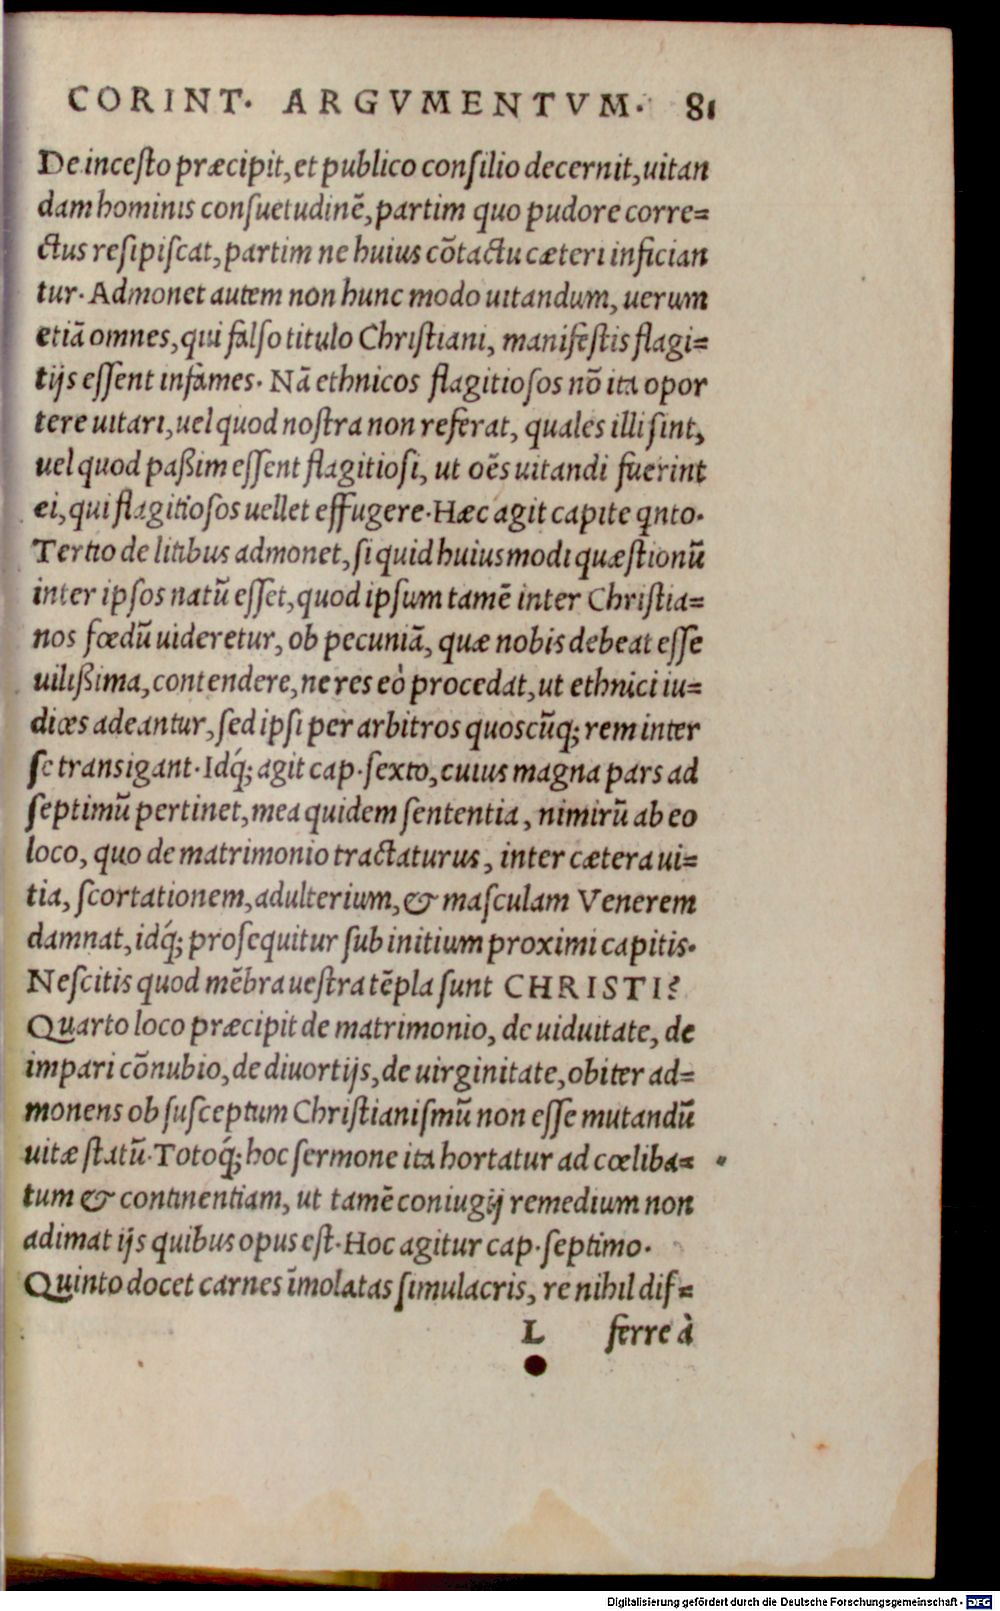 CORINT. ARGVMENTVM. 81
De incesto præcipit, et publico consilio decernit, uitan
dam hominis consuetudinẽ, partim quo pudore corre=
ctus resipiscat, partim ne huius cõtactu cæteri infician
tur. Admonet autem non hunc modo uitandum, uerum
etiã omnes, qui falso titulo Christiani, manifestis flagi=
tijs essent infames. Nã ethnicos flagitiosos nõ ita opor
tere uitari, uel quod nostra non referat, quales illi sint,
uel quod paßim essent flagitiosi, ut oẽs uitandi fuerint
ei, qui flagitiosos uellet effugere. Hæc agit capite qnto.
Tertio de litibus admonet, si quid huiusmodi quæstionũ
inter ipsos natũ esset, quod ipsum tamẽ inter Christia=
nos fœdũ uideretur, ob pecuniã, quæ nobis debeat esse
uilißima, contendere, ne res eò procedat, ut ethnici iu=
dices adeantur, sed ipsi per arbitros quoscũq; rem inter
se transigant. Idq́; agit cap. sexto, cuius magna pars ad
septimũ pertinet, mea quidem sententia, nimirũ ab eo
loco, quo de matrimonio tractaturus, inter cætera ui=
tia, scortationem, adulterium, & masculam Venerem
damnat, idq́; prosequitur sub initium proximi capitis.
Nescitis quod mẽbra uestra tẽpla sunt CHRISTI?
Quarto loco præcipit de matrimonio, de uiduitate, de
impari cõnubio, de diuortijs, de uirginitate, obiter ad=
monens ob susceptum Christianismũ non esse mutandũ
uitæ statũ. Totoq́; hoc sermone ita hortatur ad cœliba=
tum & continentiam, ut tamẽ coniugij remedium non
adimat ijs quibus opus est. Hoc agitur cap. septimo.
Quinto docet carnes ĩmolatas simulacris, re nihil dif=
L ferre à
Digitalisierung gefördert durch die Deutsche Forschungsgemeinschaft - DFG